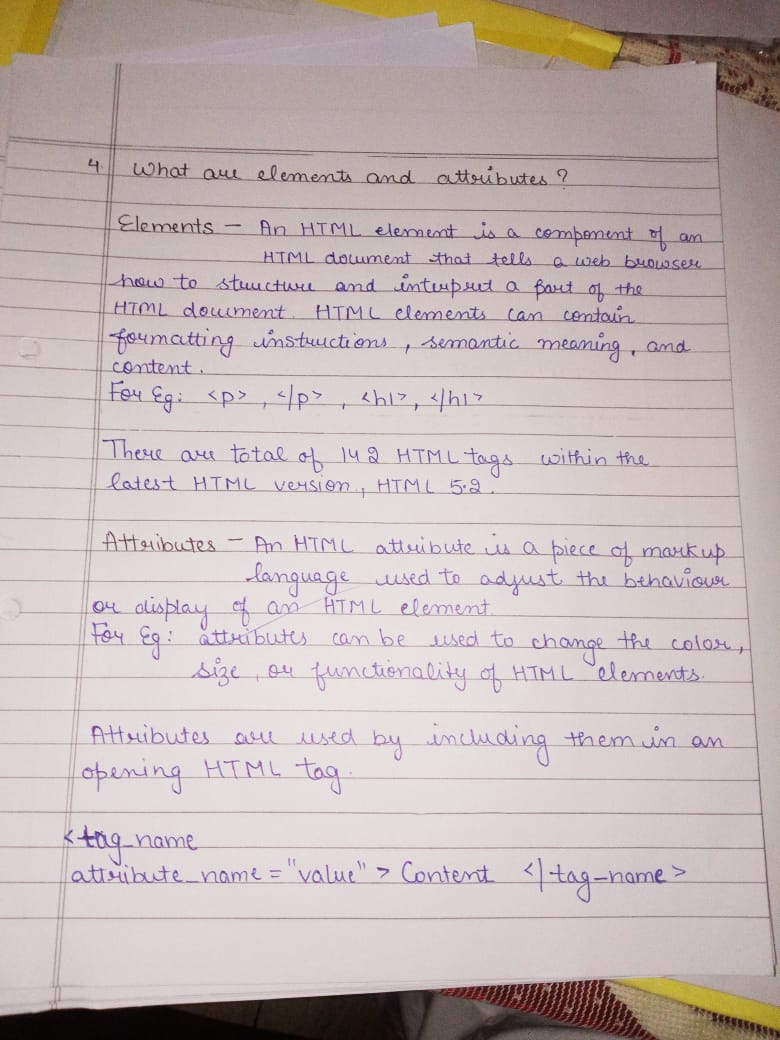 4. What are elements and attributes?
Elements - An HTML element is a component of an
HTML document that tells a web browser
how to structure and interpret a part of the
HTML document. HTML elements can contain
formatting instructions, semantic meaning, and
content.
For Eg: <p>, </p>, <h1>, </h1>
There are total of 142 HTML tags within the
latest HTML version, HTML 5.2.
Attributes - An HTML attribute is a piece of markup
language used to adjust the behaviour
or display of an HTML element.
For Eg: attributes can be used to change the color,
size, or functionality of HTML elements.
Attributes are used by including them in an
opening HTML tag.
<tag_name
attribute_name = "value" > Content </tag-name>